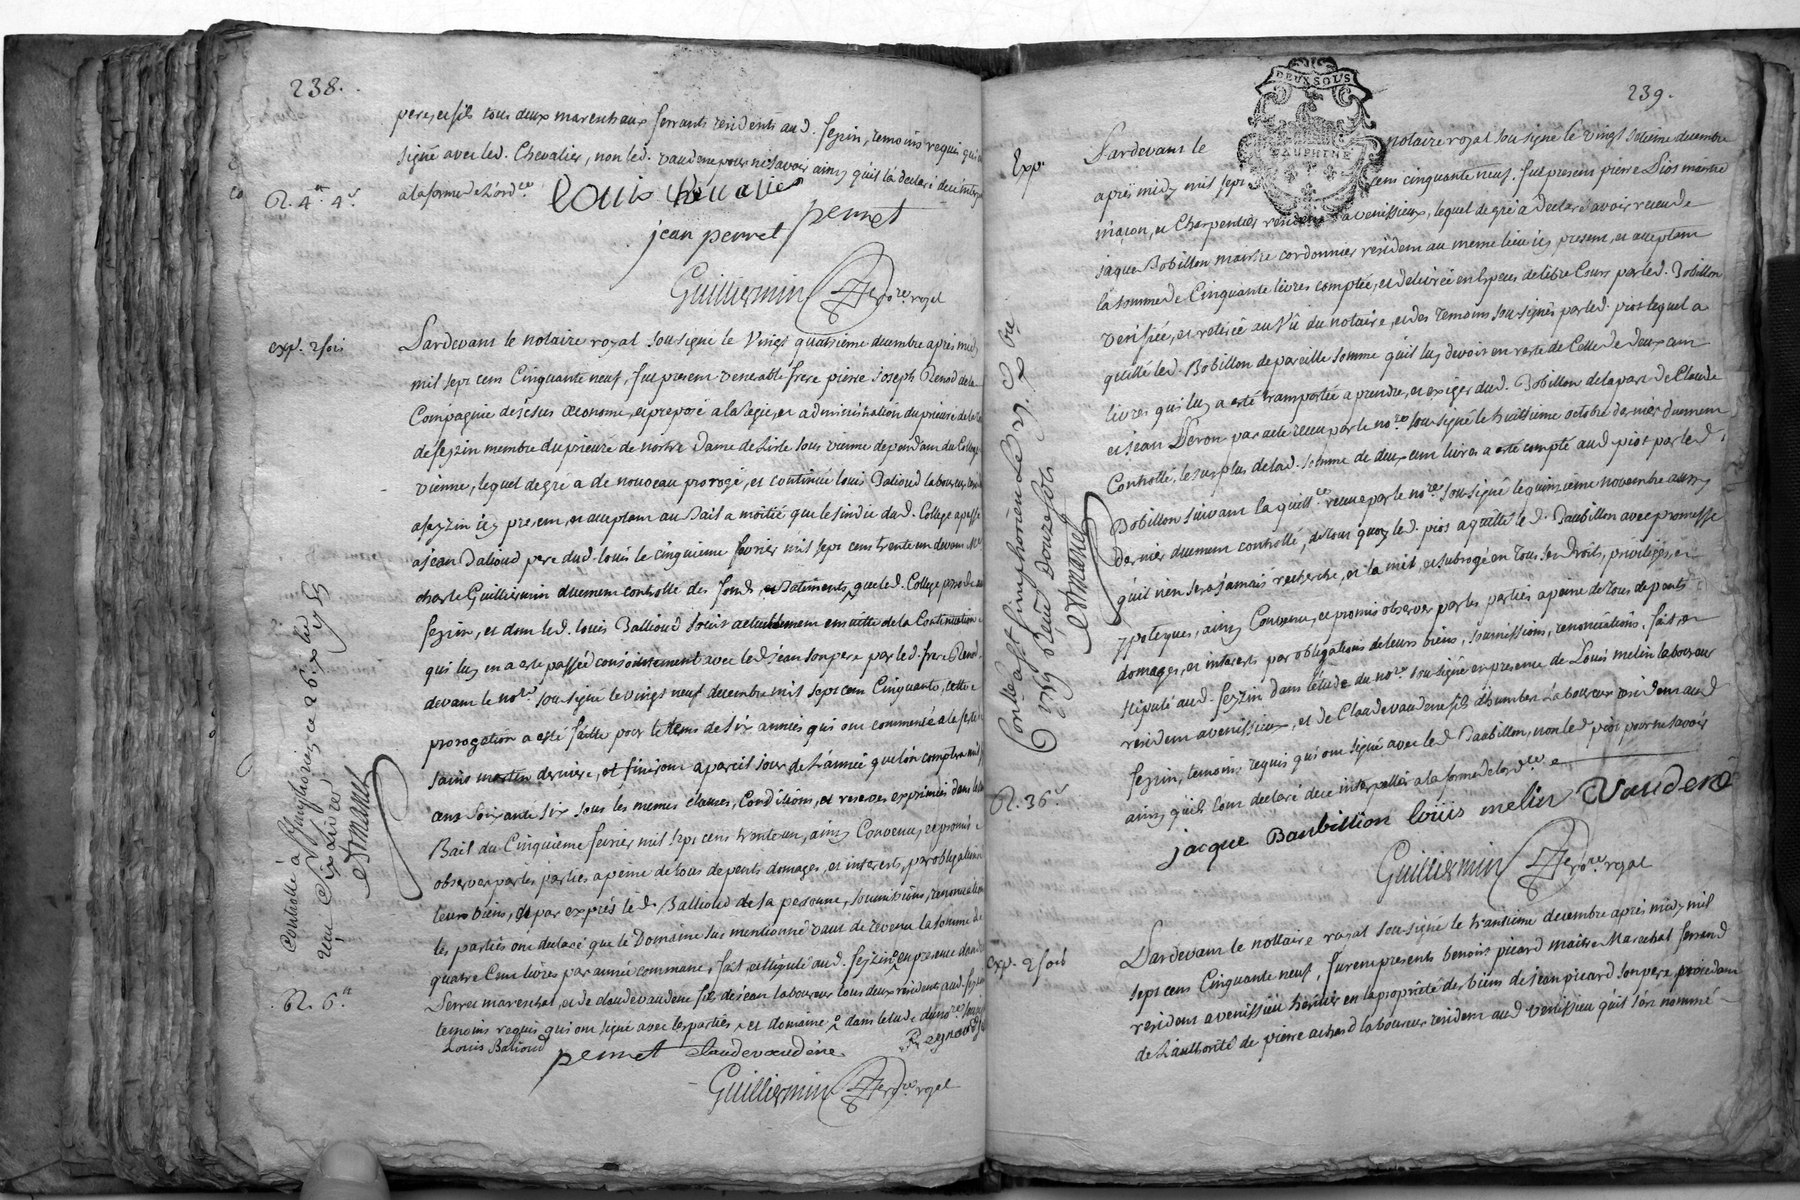 238.
pere, et fils tous deux marechaux ferrants residents aud. feyzin, temoins requis qui
signé avec led. Chevalier, non led. vaudene pour ne savoir ainsy quil la declaré de ce interp
a la forme de L'ord.ce
R. 4.tt 4.s
Louis Chevalier
jean perret perret
Guilliermin no.re royal
exp. 2 fois
Pardevant le notaire royal sousigné le Vingt quatrieme decembre après midy
mil sept cent Cinquante neuf, fut present venerable frere pierre Joseph Renod de la
Compagnie de jesus œconome, et preposé a la regie, et administration du prieuré de
de feyzin membre du prieuré de nostre Dame de Lisle sous vienne dependant du College
vienne, lequel de gré a de nouveau prorogé, et continué louis Balioud laboureur
a feyzin icy present, et acceptant au Bail a moitié que le sindic dud. College a passé
a jean Balioud pere dud. louis le cinquieme fevrier mil sept cent trente un devant Me
charle Guilliermin duement controllé des fonds, et Batiments, que led. College possede a
feyzin, et dont led. louis Ballioud jouit actuellement ensuitte de la Continuation
qui luy en a esté passée conjointement avec led. jean son pere par led. frere Renod
devant le no.re sousigné le vingt neuf decembre mil sept cent Cinquante, cette
prorogation a esté faitte pour le tems de six années qui ont commencé a la feste
saint martin derniere, et finiront a pareil jour de L'année que lon comptera mil
cent soixante six sous les memes clauses, Conditions, et reserves exprimées dans le
Bail du Cinquième fevrier mil sept cent trente un, ainsy Convenu, et promis
observer par les parties a peine de tous depents domages, et interests, par obligation
leurs biens, et par exprés led. Ballioud de sa personne, soumissions, renonciations
les parties ont declaré que le Domaine sus mentionné vaut de revenu la somme de
quatre Cent livres par année commune, fait et stipulé aud. feyzin en presence de
Perret mareschal, et de claude vaudene fils de jean laboureur tous deux residents aud. feyzin
temoins requis qui ont signé avec les parties
Controllé a St simphorien ce 26.e xbre 1759
Reçu Six livres
Esmanet
R. 6.tt
Louis Balioud perret claude vaudene Reynaud
Guilliermin no.re royal
239.
DEUX SOLS
DAUPHINE
Exp.
Pardevant le notaire royal sousigné le vingt setieme decembre
après midy mil sept cent cinquante neuf, fut present pierre Piot maitre
maçon, et Charpentier resident a venissieux, lequel de gré a declaré avoir receu de
jaque Bobillon maitre cordonnier resident au meme lieu icy present, et acceptant
la somme de Cinquante livres comptée, et delivrée en Especes de libre Cours par led. Bobillon
verifiée, et retirée au Vû du notaire, et des temoins sousignés par led. piot lequel a
quitté led. Bobillon de pareille somme quil luy devoit en reste de Celle de deux cent
livres qui luy a esté transportée a prendre, et exiger dud. Bobillon de la part de Claude
et jean Peron par acte receu par le no.re sousigné le huitieme octobre dernier duement
Controllé, le surplus de lad. somme de deux cent livres a esté compté aud. piot par led.
Bobillon suivant la quitt.ce receue par le no.re sousigné le quinzieme novembre aussy
dernier duement controllé, de tout quoy led. piot a quitté led. Baubillon avec promesse
quil n'en sera jamais recherché, et la mis, et subrogé en tous ses Droits, privilèges, et
ypoteques, ainsy Convenu, et promis observer par les parties a peine de tous depents
domages, et interests par obligations de leurs biens, soumissions, renonciations, fait, et
stipulé aud. feyzin dans l'étude du no.re sousigné en presence de Louis melin laboureur
resident a venissieux, et de Claude vaudene fils d'humbert laboureur resident aud.
feyzin, temoins requis qui ont signé avec led. Baubillon, non led. piot pour ne savoir
ainsy quils l'ont declaré de ce interpellés a la forme de l'ord.ce
Con.lé a St simphorien
Reçu Douze sols
Esmanet
R. 36.s
jacque Baubillion louis melin Vaudené
Guilliermin no.re royal
exp. 2 fois
Pardevant le nottaire royal sousigné le trantieme decembre après midy mil
sept cent Cinquante neuf, furent presents benoit picard maitre Marechal ferrand
resident a venissieu heritier en la propriété des biens de jean picard son pere procedant
de L'authorité de pierre achard laboureur resident aud. venissieu qu'il s'est nommé